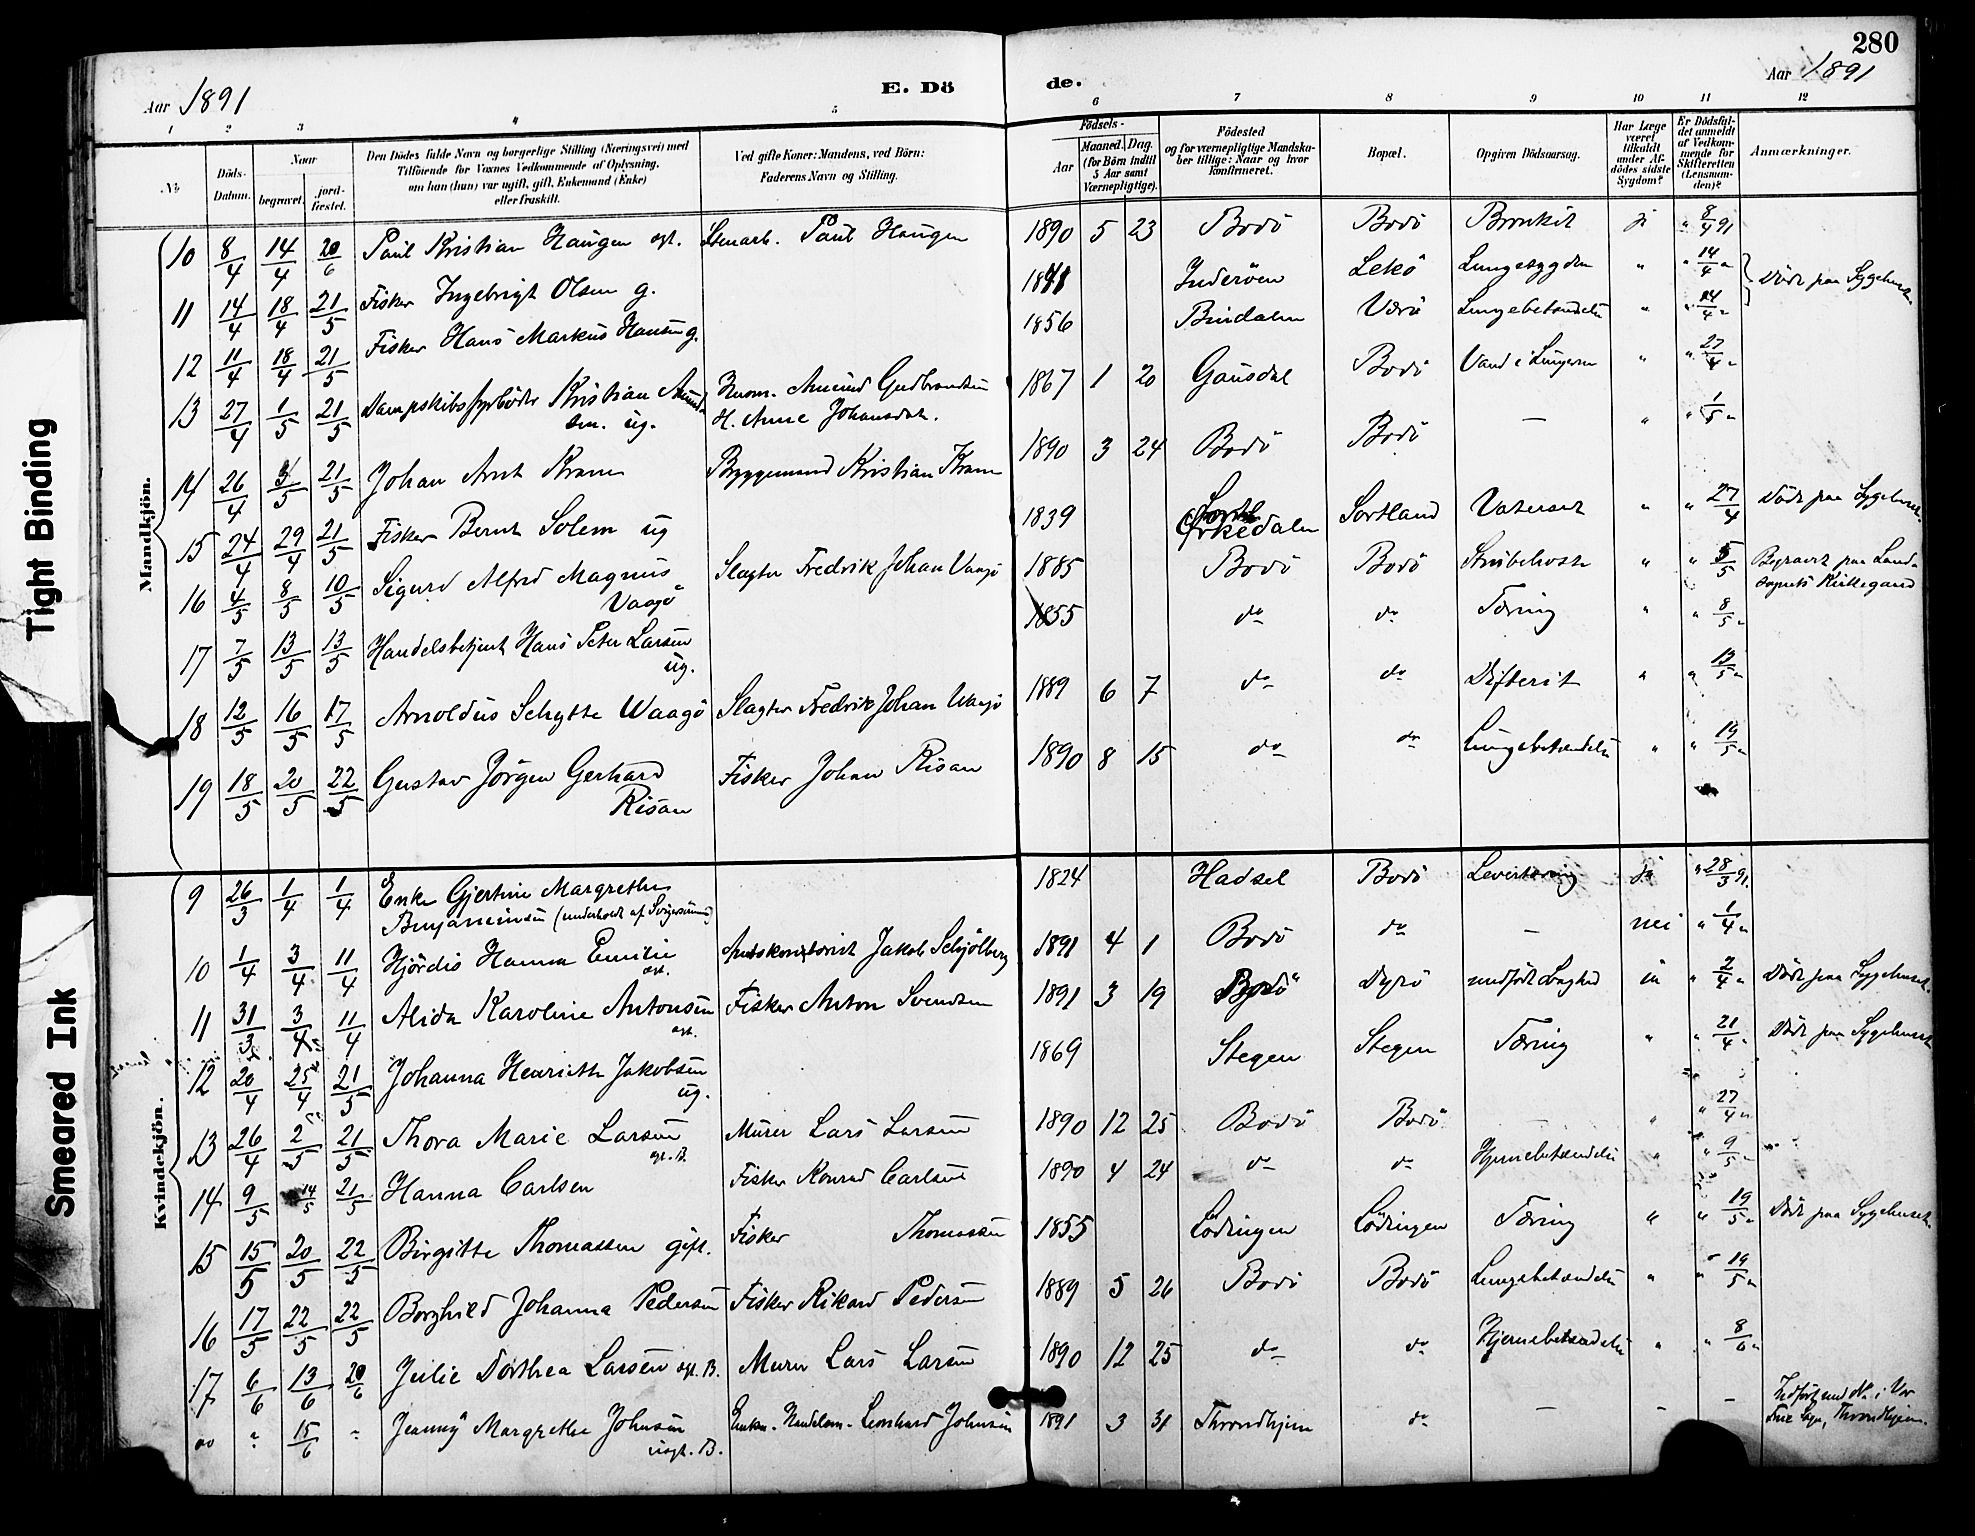 280
Aar 1891
E. Dö
de.
Aar 1891
1 2 3 4 5 6 7 8 9 10 11 12
No
Döds-Datum.
Naar
begravet.
jord-fæstet.
Den Dödes fulde Navn og borgerlige Stilling (Næringsvei) med
Tilföiende for Voxnes Vedkommende af Oplysning,
om han (hun) var ugift, gift, Enkemand (Enke)
eller fraskilt.
Ved gifte Koner: Mandens, ved Börn:
Faderens Navn og Stilling.
Födsels-
Aar
Maaned. Dag.
(for Börn indtil
5 Aar samt
Værnepligtige).
Födested
og for værnepligtige Mandska-
ber tillige: Naar og hvor
konfirmeret.
Bopæl.
Opgiven Dödsaarsag.
Har Læge
været
tilkaldt
under Af-
dödes sidste
Sygdom?
Er Dödsfal-
det anmeldt
af Vedkom-
mende for
Skifteretten
(Lensman-
den)?
Anmærkninger.
Mandkjön.
10 8/4 14/4 20/6 Paul Kristian Haugen egt. Stenarb. Paul Haugen 1890 5 23 Bodö Bodö Bronkit ja " 8/4 91
11 14/4 18/4 21/5 Fisker Ingebrigt Olsen g. 1841 Inderöen Lekö Lungesygdom " " 14/4 " Döde paa Sygehuset
12 11/4 18/4 21/5 Fisker Hans Markus Hansen g. 1856 Bindalen Værö Lungebetændelse " " 14/4 "
13 27/4 1/5 21/5 Dampskibsfyrböder Kristian Amund-
sen. ug.
Husm. Amund Gudbrandsen
H. Anne Johansdat.
1867 1 20 Gausdal Bodö Vand i Lungerne " " 27/4 "
14 26/4 3/5 21/5 Johan Arnt Krane Byggemand Kristian Krane 1890 3 24 Bodö Bodö — " " 1/5 "
15 24/4 29/4 21/5 Fisker Bernt Solem ug 1839 Orkedalen Sortland Vatersot " " 27/4 Döde paa Sygehuset.
16 4/5 8/5 10/5 Sigurd Alfred Magnus
Vaagö
Slagter Fredrik Johan Vaagö 1885 Bodö Bodö Strubehoste " " 5/5 Begravet paa Land-
sognets Kirkegaard
17 7/5 13/5 13/5 Handelsbetjent Hans Peter Larsen
ug.
1855 do do Tæring " " 8/5 "
18 12/5 16/5 17/5 Arnoldus Schytte Waagö Slagter Fredrik Johan Waagö 1889 6 7 do do Difterit " " 13/5 "
19 18/5 20/5 22/5 Gustav Jörgen Gerhard
Risan
Fisker Johan Risan 1890 8 15 do do Lungebetændelse " " 19/5 "
Kvindekjön.
9 26/3 1/4 1/4 Enke Gjertine Margrethe
Benjaminsen (underholdt af Svigersönnen)
1824 Hadsel Bodö Levertæring ja " 28/3 91.
10 1/4 3/4 11/4 Hjördis Hanna Emilie
egt.
Amtskontorist Jakob Schjölberg 1891 4 1 Bodö do — nei " 1/4 "
11 31/3 3/4 11/4 Alida Karoline Antonsen
egt.
Fisker Anton Svendsen 1891 3 19 Bodö Dyrö medfödt Svaghed ja " 2/4 " Döde paa Sygehuset.
12 20/4 25/4 21/5 Johanna Henriette Jakobsen
ug.
1869 Stegen Stegen Tæring " " 21/4 " Döde paa Sygehuset
13 26/4 2/5 21/5 Thora Marie Larsen
egt. B.
Murer Lars Larsen 1890 12 25 Bodö Bodö — " " 27/4 "
14 9/5 14/5 21/5 Hanna Carlsen Fisker Konrad Carlsen 1890 4 24 do do Hjernebetændelse " " 9/5 "
15 15/5 20/5 22/5 Birgitte Thomassen gift. Fisker Thomassen 1855 Lödingen Lödingen Tæring " " 19/5 " Döde paa Sygehuset.
16 17/5 22/5 22/5 Borghild Johanna Pedersen Fisker Rikard Pedersen 1889 5 26 Bodö Bodö Lungebetændelse " " 19/5 "
17 6/6 13/6 20/6 Julie Dorthea Larsen egt. B. Murer Lars Larsen 1890 12 25 do do Hjernebetændelse " " 8/6 "
" 15/6 " Jenny Margrethe Johnsen
uegt. B.
Handelsm. Leonhard Johnsen 1891 3 31 Throndhjem do — — — Indfört med No i Vor
Frue Sogn, Throndhjem.
Tight Binding
Smeared Ink